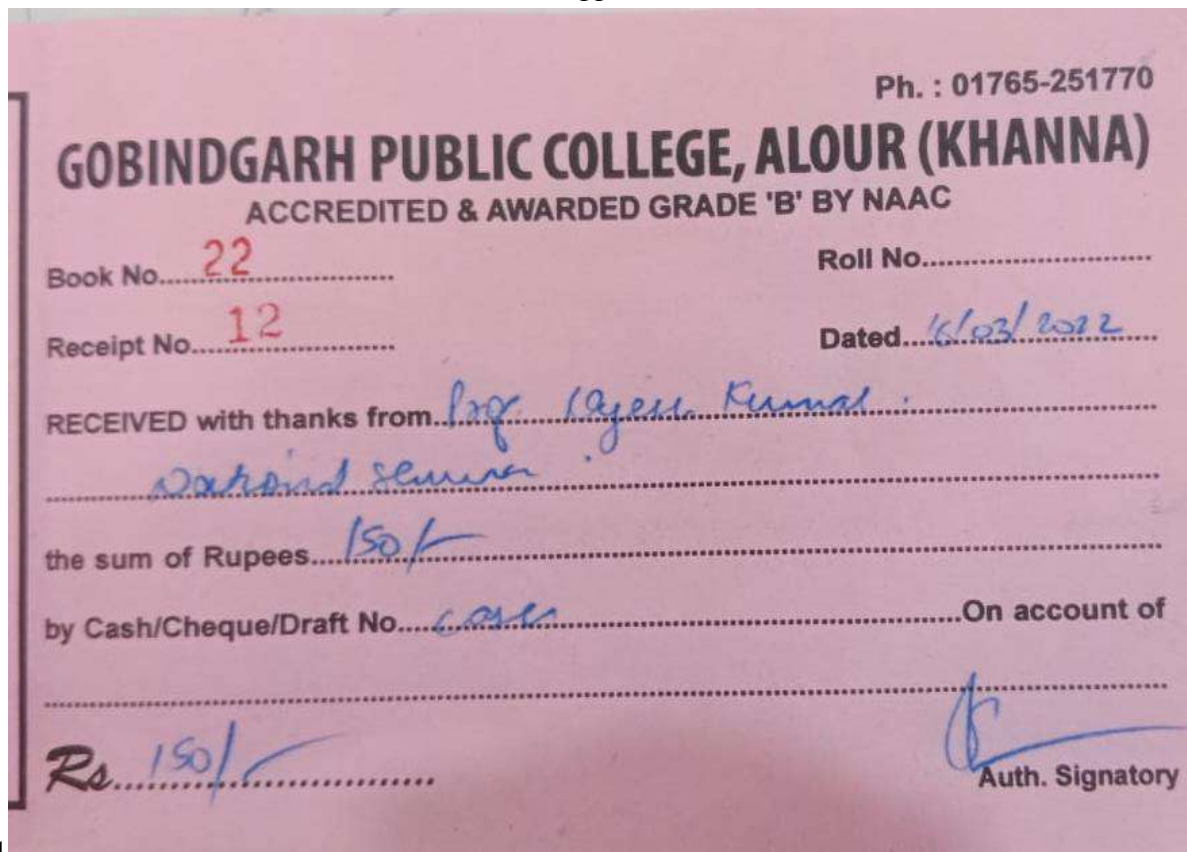 Ph. : 01765-251770
GOBINDGARH PUBLIC COLLEGE, ALOUR (KHANNA)
ACCREDITED & AWARDED GRADE 'B' BY NAAC
Book No.....22..................... Roll No............................
Receipt No.....12.................. Dated....16/03/2022.....
RECEIVED with thanks from.... Kumar .
National Seminar .
the sum of Rupees....150/-
by Cash/Cheque/Draft No.....Cash..........On account of
Rs.....150/-..........
Auth. Signatory